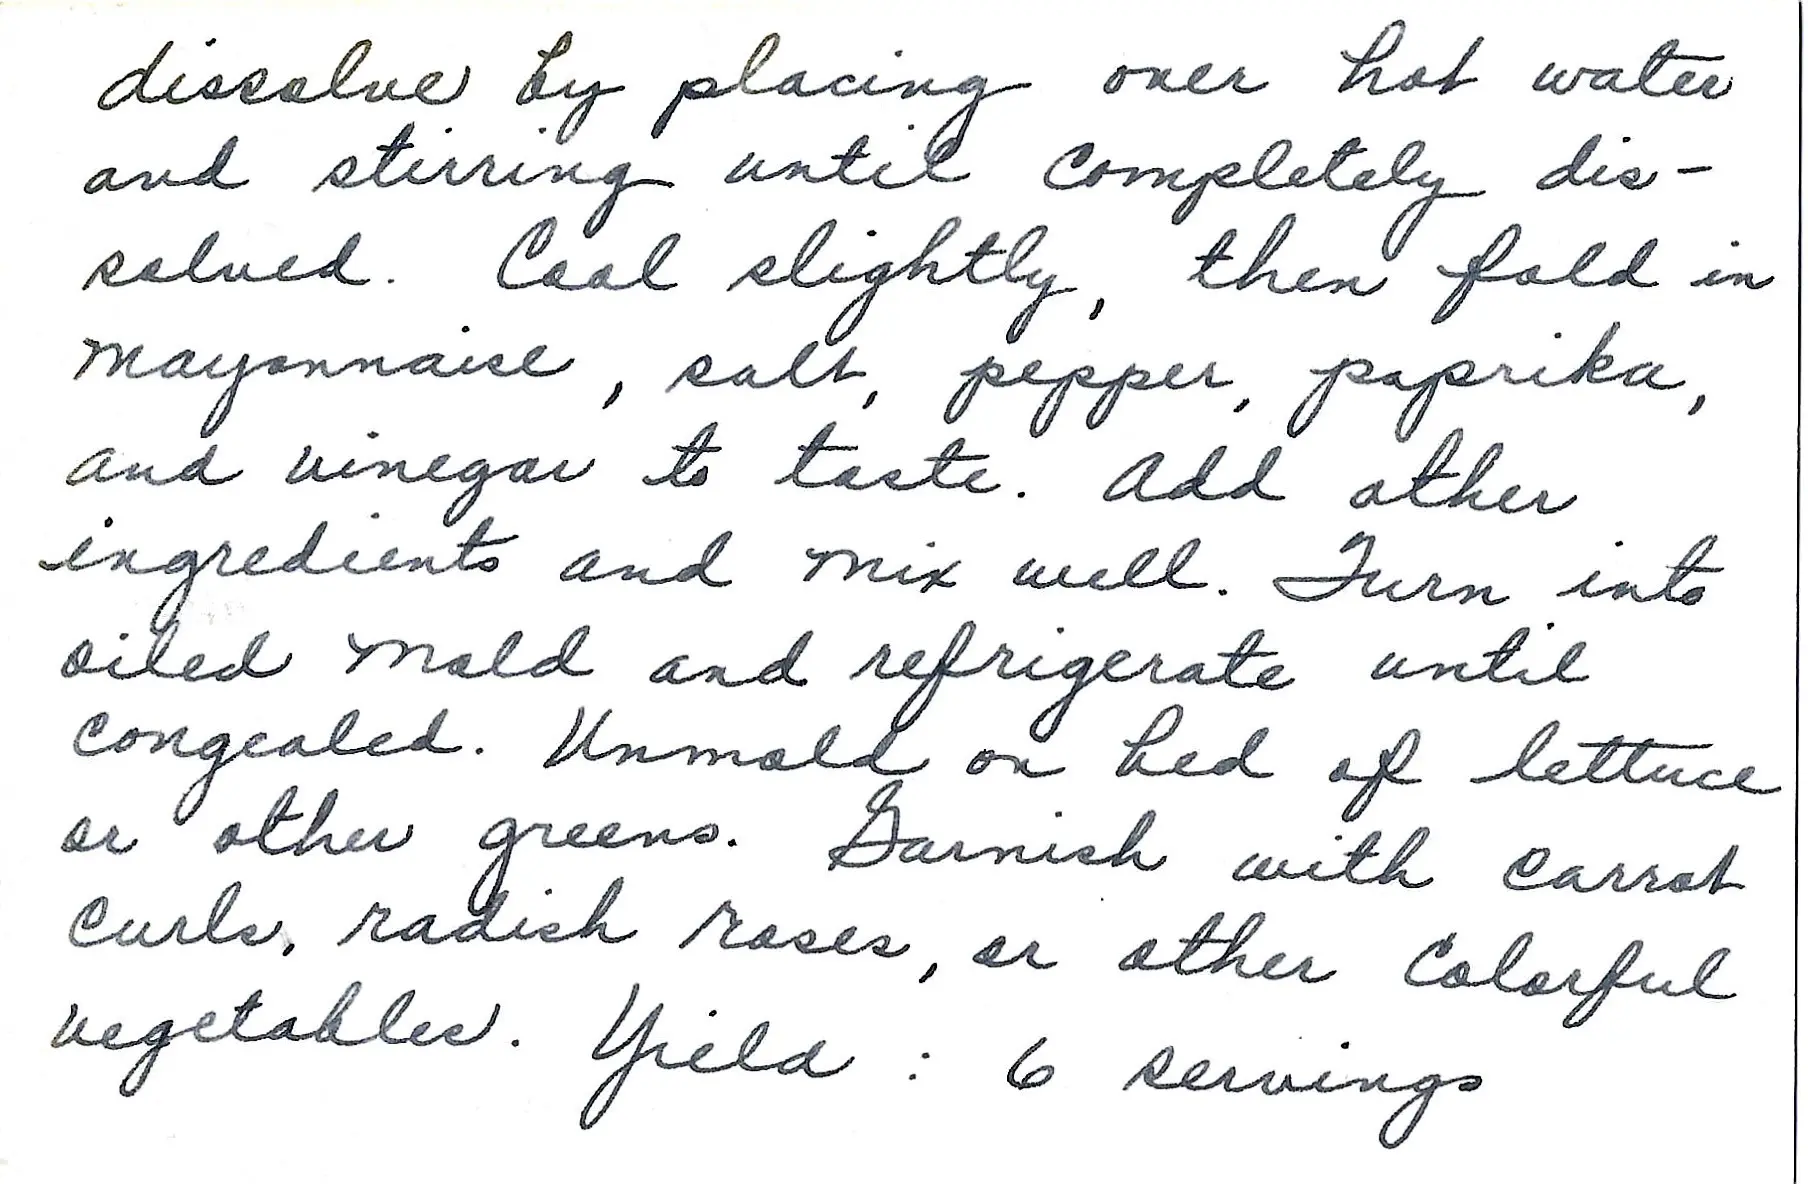 dissolve by placing over hot water
and stirring until completely dis-
solved. Cool slightly, then fold in
mayonnaise, salt, pepper, paprika,
and vinegar to taste. Add other
ingredients and mix well. Turn into
oiled mold and refrigerate until
congealed. Unmold on bed of lettuce
or other greens. Garnish with carrot
curls, radish roses, or other colorful
vegetables. Yield : 6 servings